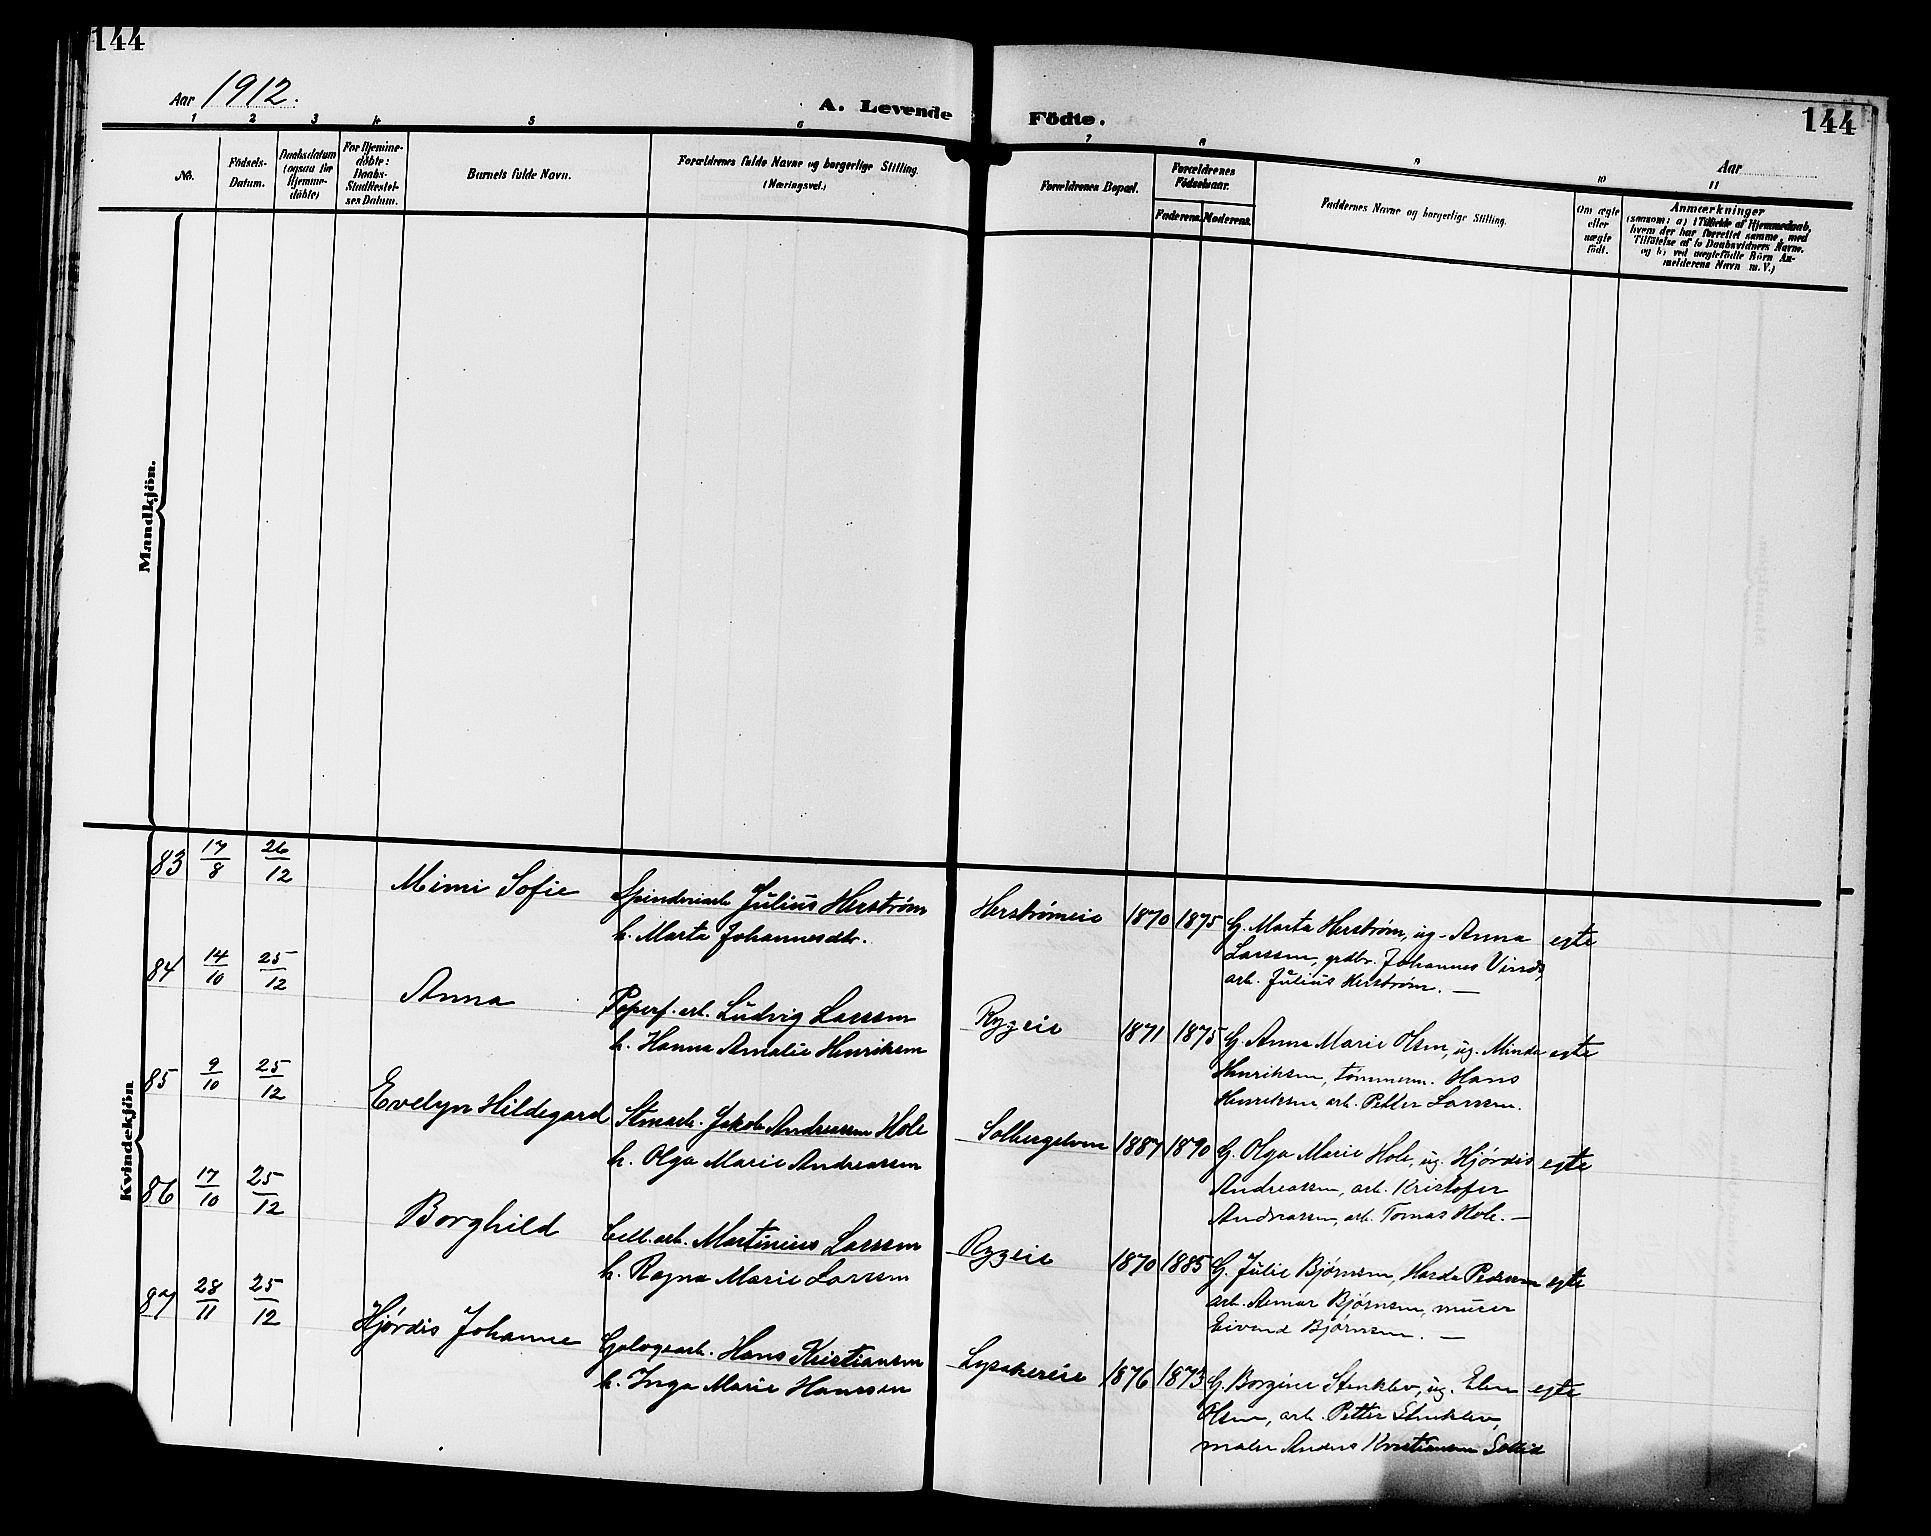 144
Aar 1912.
A. Levende
Födte.
144
Aar
1 2 3 4 5 6 7 8 9 10 11
No.
Födsels-
Datum.
Daabsdatum
(ogsaa for
Hjemme-
döbte)
For Hjemme-
döbte:
Daabs-
Stadfæstel-
ses Datum.
Barnets fulde Navn.
Forældrenes fulde Navne og borgerlige Stilling.
(Næringsvei.)
Forældrenes Bopæl.
Forældrenes
Födselsaar.
Faderens. Moderens.
Faddernes Navne og borgerlige Stilling.
Om ægte
eller
uægte
födt.
Anmærkninger
(saasom: a) i Tilfælde af Hjemmedaab,
hvem der har forrettet samme, med
Tilföielse af to Daabsvidners Navne.
og b) ved uægtefödte Börn An-
melderens Navn m. V.)
Mandkjön.
Kvindekjön
83 17/8 26/12 Mimi Sofie
Spinderiarb. Julius Herstrøm
h. Marta Johannesdtr.
Herstrømeie 1870 1875
G. Marta Herstrøm, ug. Anna
Larssen, grdbr. Johannes
arb. Julius Herstrøm. —
egte
84 14/10 25/12 Anna
Papirf. arb. Ludvig Larssen
h. Hanna Amalie Henriksen
Ryggeie 1871 1875
G. Anna Marie Olsen, ug. Minda
Henriksen, tømmerm. Hans
Henriksen, arb. Petter Larssen.
egte
85 9/10 25/12 Evelyn Hildegard
Stenarb. Jakob Andreassen Hole
h. Olga Marie Andreassen
Solbergelven 1887 1890
G. Olga Marie Hole, ug. Hjørdis
Andreassen, arb. Kristofer
Andreassen, arb. Tomas Hole. —
egte
86 17/10 25/12 Borghild
Cell. arb. Martinius Larssen
h. Ragna Marie Larssen
Ryggeie 1870 1885
G. Julie Bjørnsen, Harda Pedersen
arb. Bjørnsen, murer
Eivind Bjørnsen. —
egte
87 28/11 25/12 Hjørdis Johanne
arb. Hans Kristiansen
h. Inga Marie Hanssen
Lysakereie 1876 1873
G. Borgine Stenklev, ug. Elen
Olsen, arb. Petter Stenklev,
maler Anders Kristiansen Sollid
egte